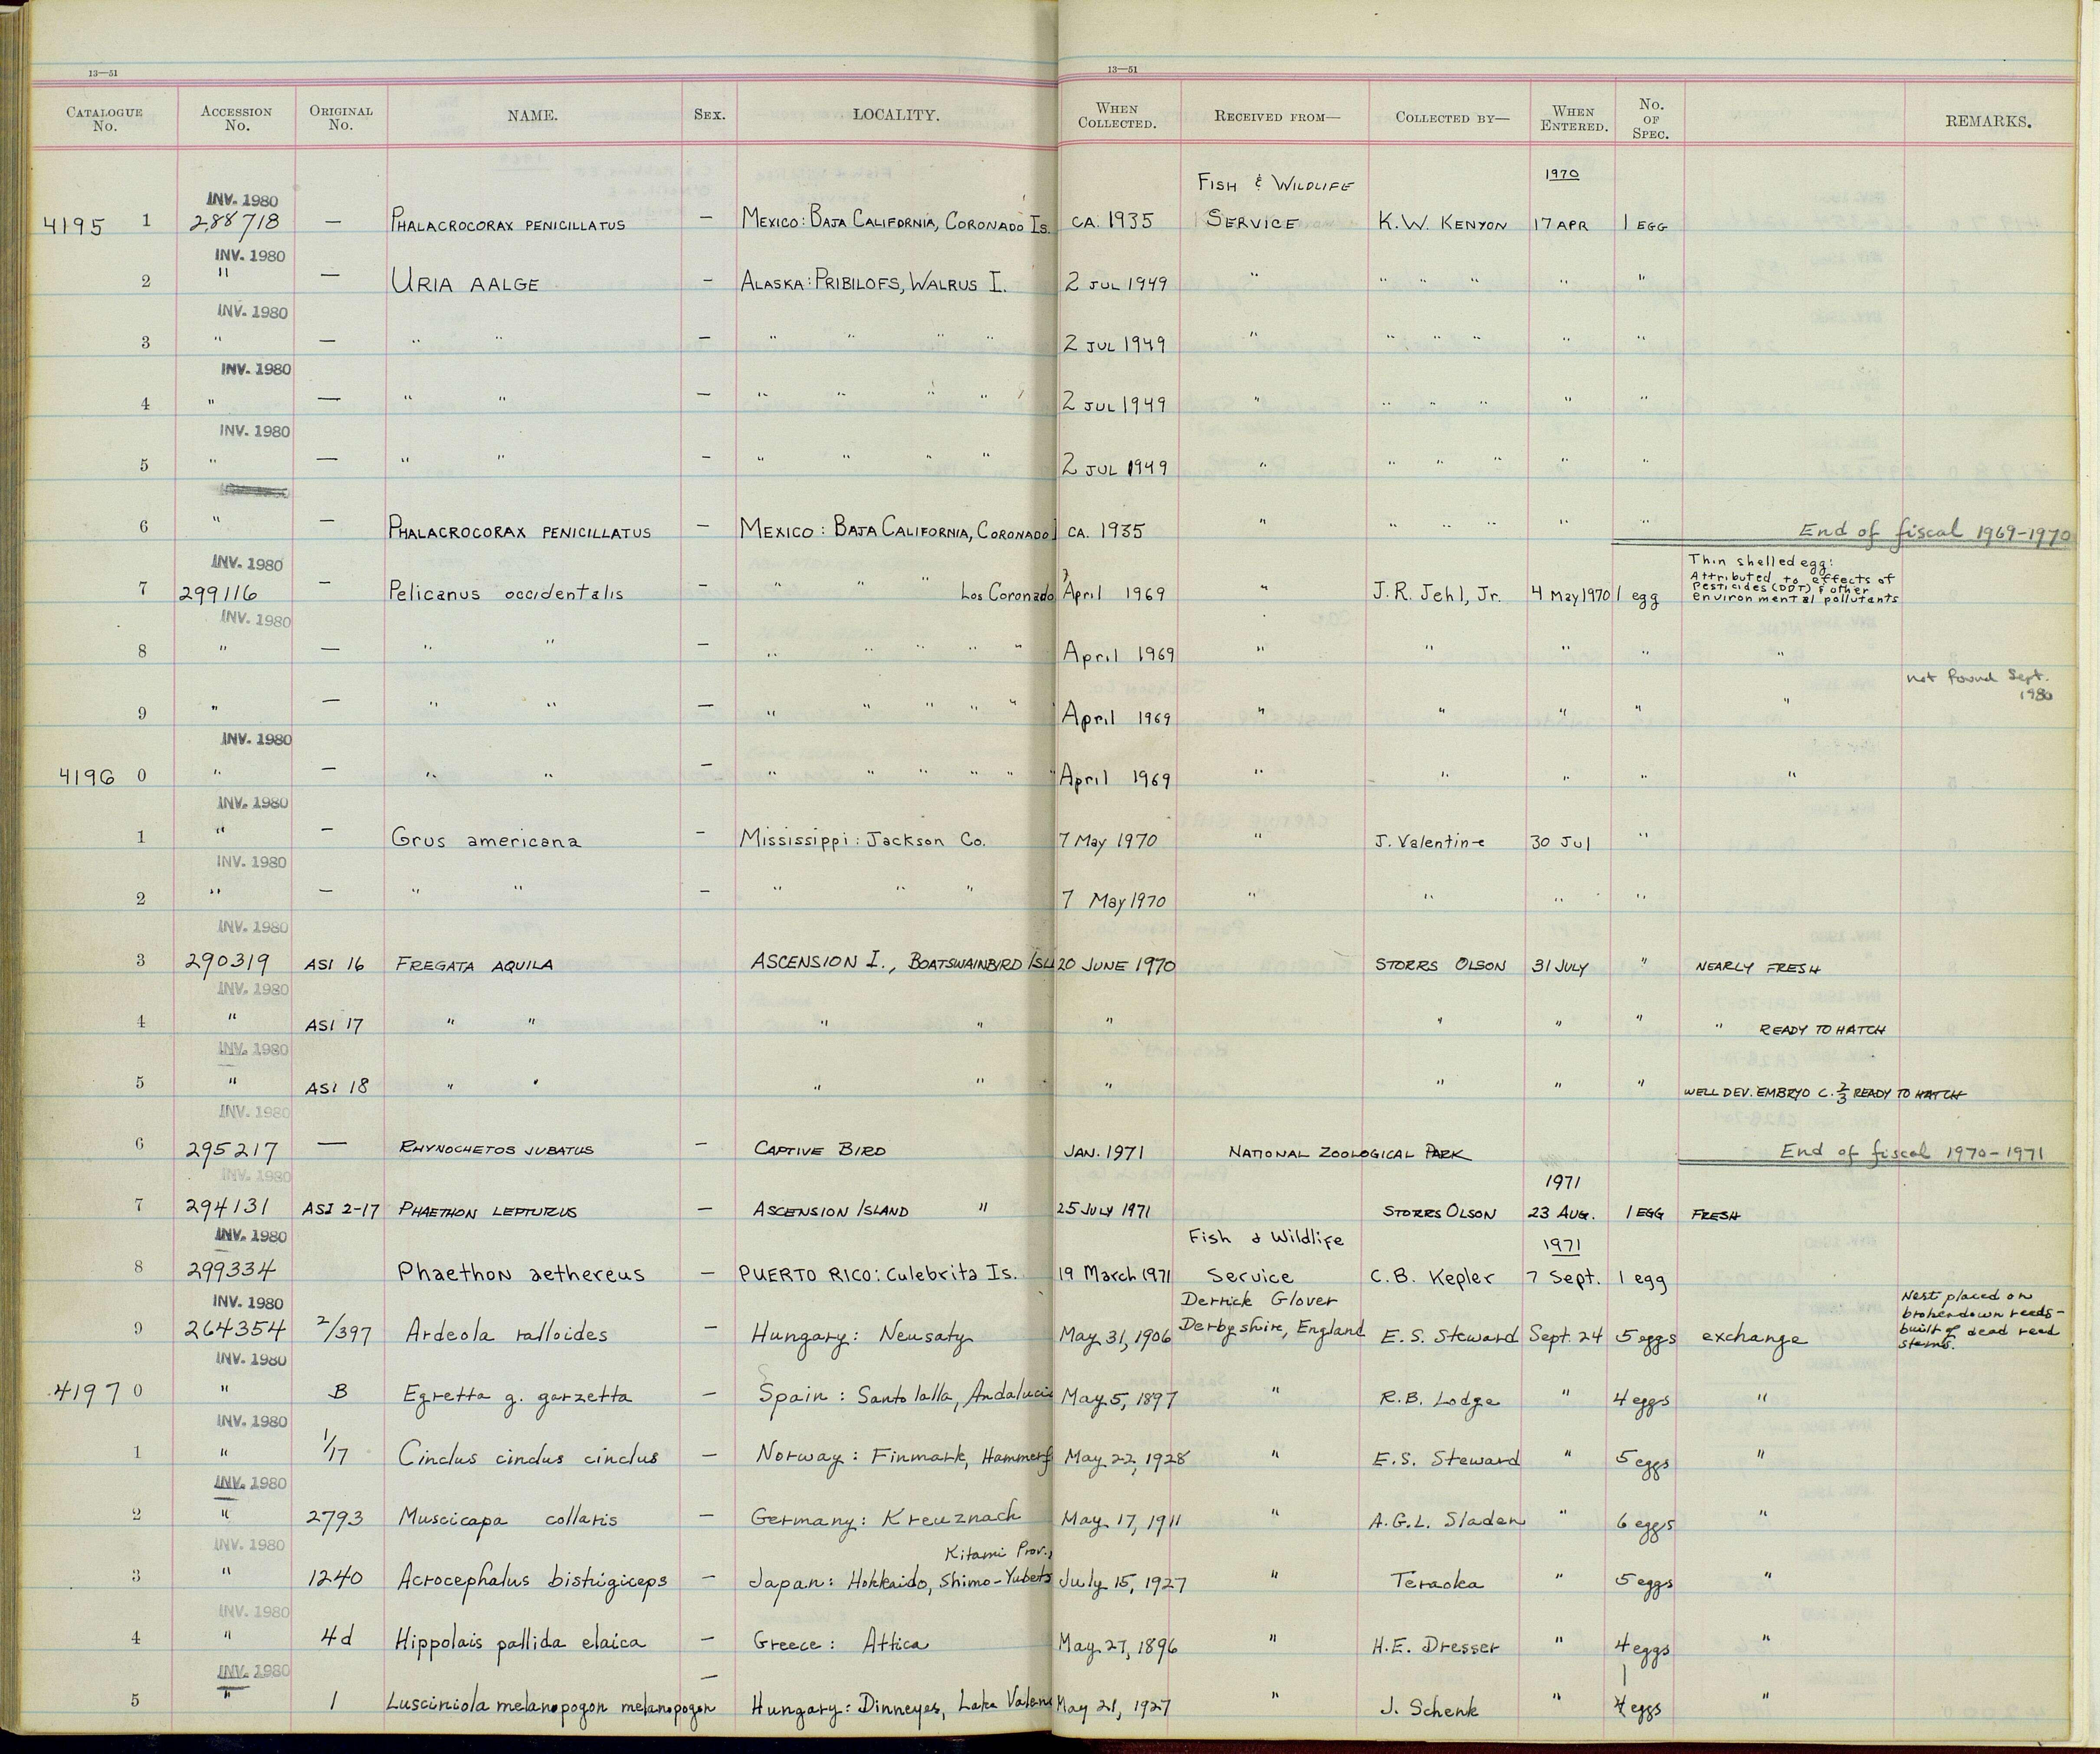 13—51
13—51
CATALOGUE No. ACCESSION No. ORIGINAL No. NAME. SEX. LOCALITY. WHEN COLLECTED. RECEIVED FROM— COLLECTED BY— WHEN ENTERED. No. OF SPEC. REMARKS.
INV. 1980 FISH & WILDLIFE 1970
4195 1 288718 — PHALACROCORAX PENICILLATUS — MEXICO: BAJA CALIFORNIA, CORONADO IS. CA. 1935 SERVICE K.W. KENYON 17 APR 1 EGG
INV. 1980
2 " — URIA AALGE — ALASKA: PRIBILOFS, WALRUS I. 2 JUL 1949 " " " " " "
INV. 1980
3 " — " " — " " " " 2 JUL 1949 " " " " " "
INV. 1980
4 " — " " — " " " " 2 JUL 1949 " " " " " "
INV. 1980
5 " — " " — " " " " 2 JUL 1949 " " " " " "
6 " — PHALACROCORAX PENICILLATUS — MEXICO: BAJA CALIFORNIA, CORONADO I CA. 1935 " " " " " " End of fiscal 1969-1970
INV. 1980 Thin shelled egg:
7 299116 — Pelicanus occidentalis — " " " Los Coronado April 1969 " J.R. Jehl, Jr. 4 May 1970 1 egg Attributed to effects of
pesticides (DDT) & other
environmental pollutants
INV. 1980
8 " — " " — " " " " " April 1969 " " " " "
not found Sept. 1980
9 " — " " — " " " " " April 1969 " " " " "
INV. 1980
4196 0 " — " " — " " " " " April 1969 " " " " "
INV. 1980
1 " — Grus americana — Mississippi: Jackson Co. 7 May 1970 " J. Valentine 30 Jul "
INV. 1980
2 " — " " — " " " 7 May 1970 " " " "
INV. 1980
3 290319 ASI 16 FREGATA AQUILA ASCENSION I., BOATSWAINBIRD ISL 20 JUNE 1970 STORRS OLSON 31 JULY " NEARLY FRESH
INV. 1980
4 " ASI 17 " " " " " " " " " READY TO HATCH
INV. 1980
5 " ASI 18 " " " " " " " " WELL DEV. EMBRYO C. 2/3 READY TO HATCH
INV. 1980
6 295217 — RHYNOCHETOS JUBATUS — CAPTIVE BIRD JAN. 1971 NATIONAL ZOOLOGICAL PARK End of fiscal 1970-1971
INV. 1980 1971
7 294131 ASI 2-17 PHAETHON LEPTURUS — ASCENSION ISLAND " 25 JULY 1971 STORRS OLSON 23 AUG. 1 EGG FRESH
INV. 1980 Fish & Wildlife 1971
8 299334 Phaethon aethereus — PUERTO RICO: Culebrita Is. 19 March 1971 Service C.B. Kepler 7 Sept. 1 egg
INV. 1980 Derrick Glover Nest placed on
broken down reeds-
9 264354 2/397 Ardeola ralloides — Hungary: Neusaty May 31, 1906 Derbyshire, England E. S. Steward Sept. 24 5 eggs exchange built of dead reed
stems.
INV. 1980
4197 0 " B Egretta g. garzetta — Spain: Santolalla, Andalucia May 5, 1897 " R.B. Lodge " 4 eggs "
INV. 1980
1 " 1/17 Cinclus cinclus cinclus — Norway: Finmark, Hammerf May 22, 1928 " E.S. Steward " 5 eggs "
INV. 1980
2 " 2793 Muscicapa collaris — Germany: Kreuznach May 17, 1911 " A.G.L. Sladen " 6 eggs "
INV. 1980 Kitami Prov.,
3 " 1240 Acrocephalus bistrigiceps — Japan: Hokkaido, Shimo-Yubets July 15, 1927 " Teraoka " 5 eggs "
INV. 1980
4 " 4d Hippolais pallida elaica — Greece: Attica May 27, 1896 " H.E. Dresser " 4 eggs "
INV. 1980
5 " 1 Lusciniola melanopogon melanopogon — Hungary: Dinneyes, Lake Valen May 21, 1927 " J. Schenk " 4 eggs "